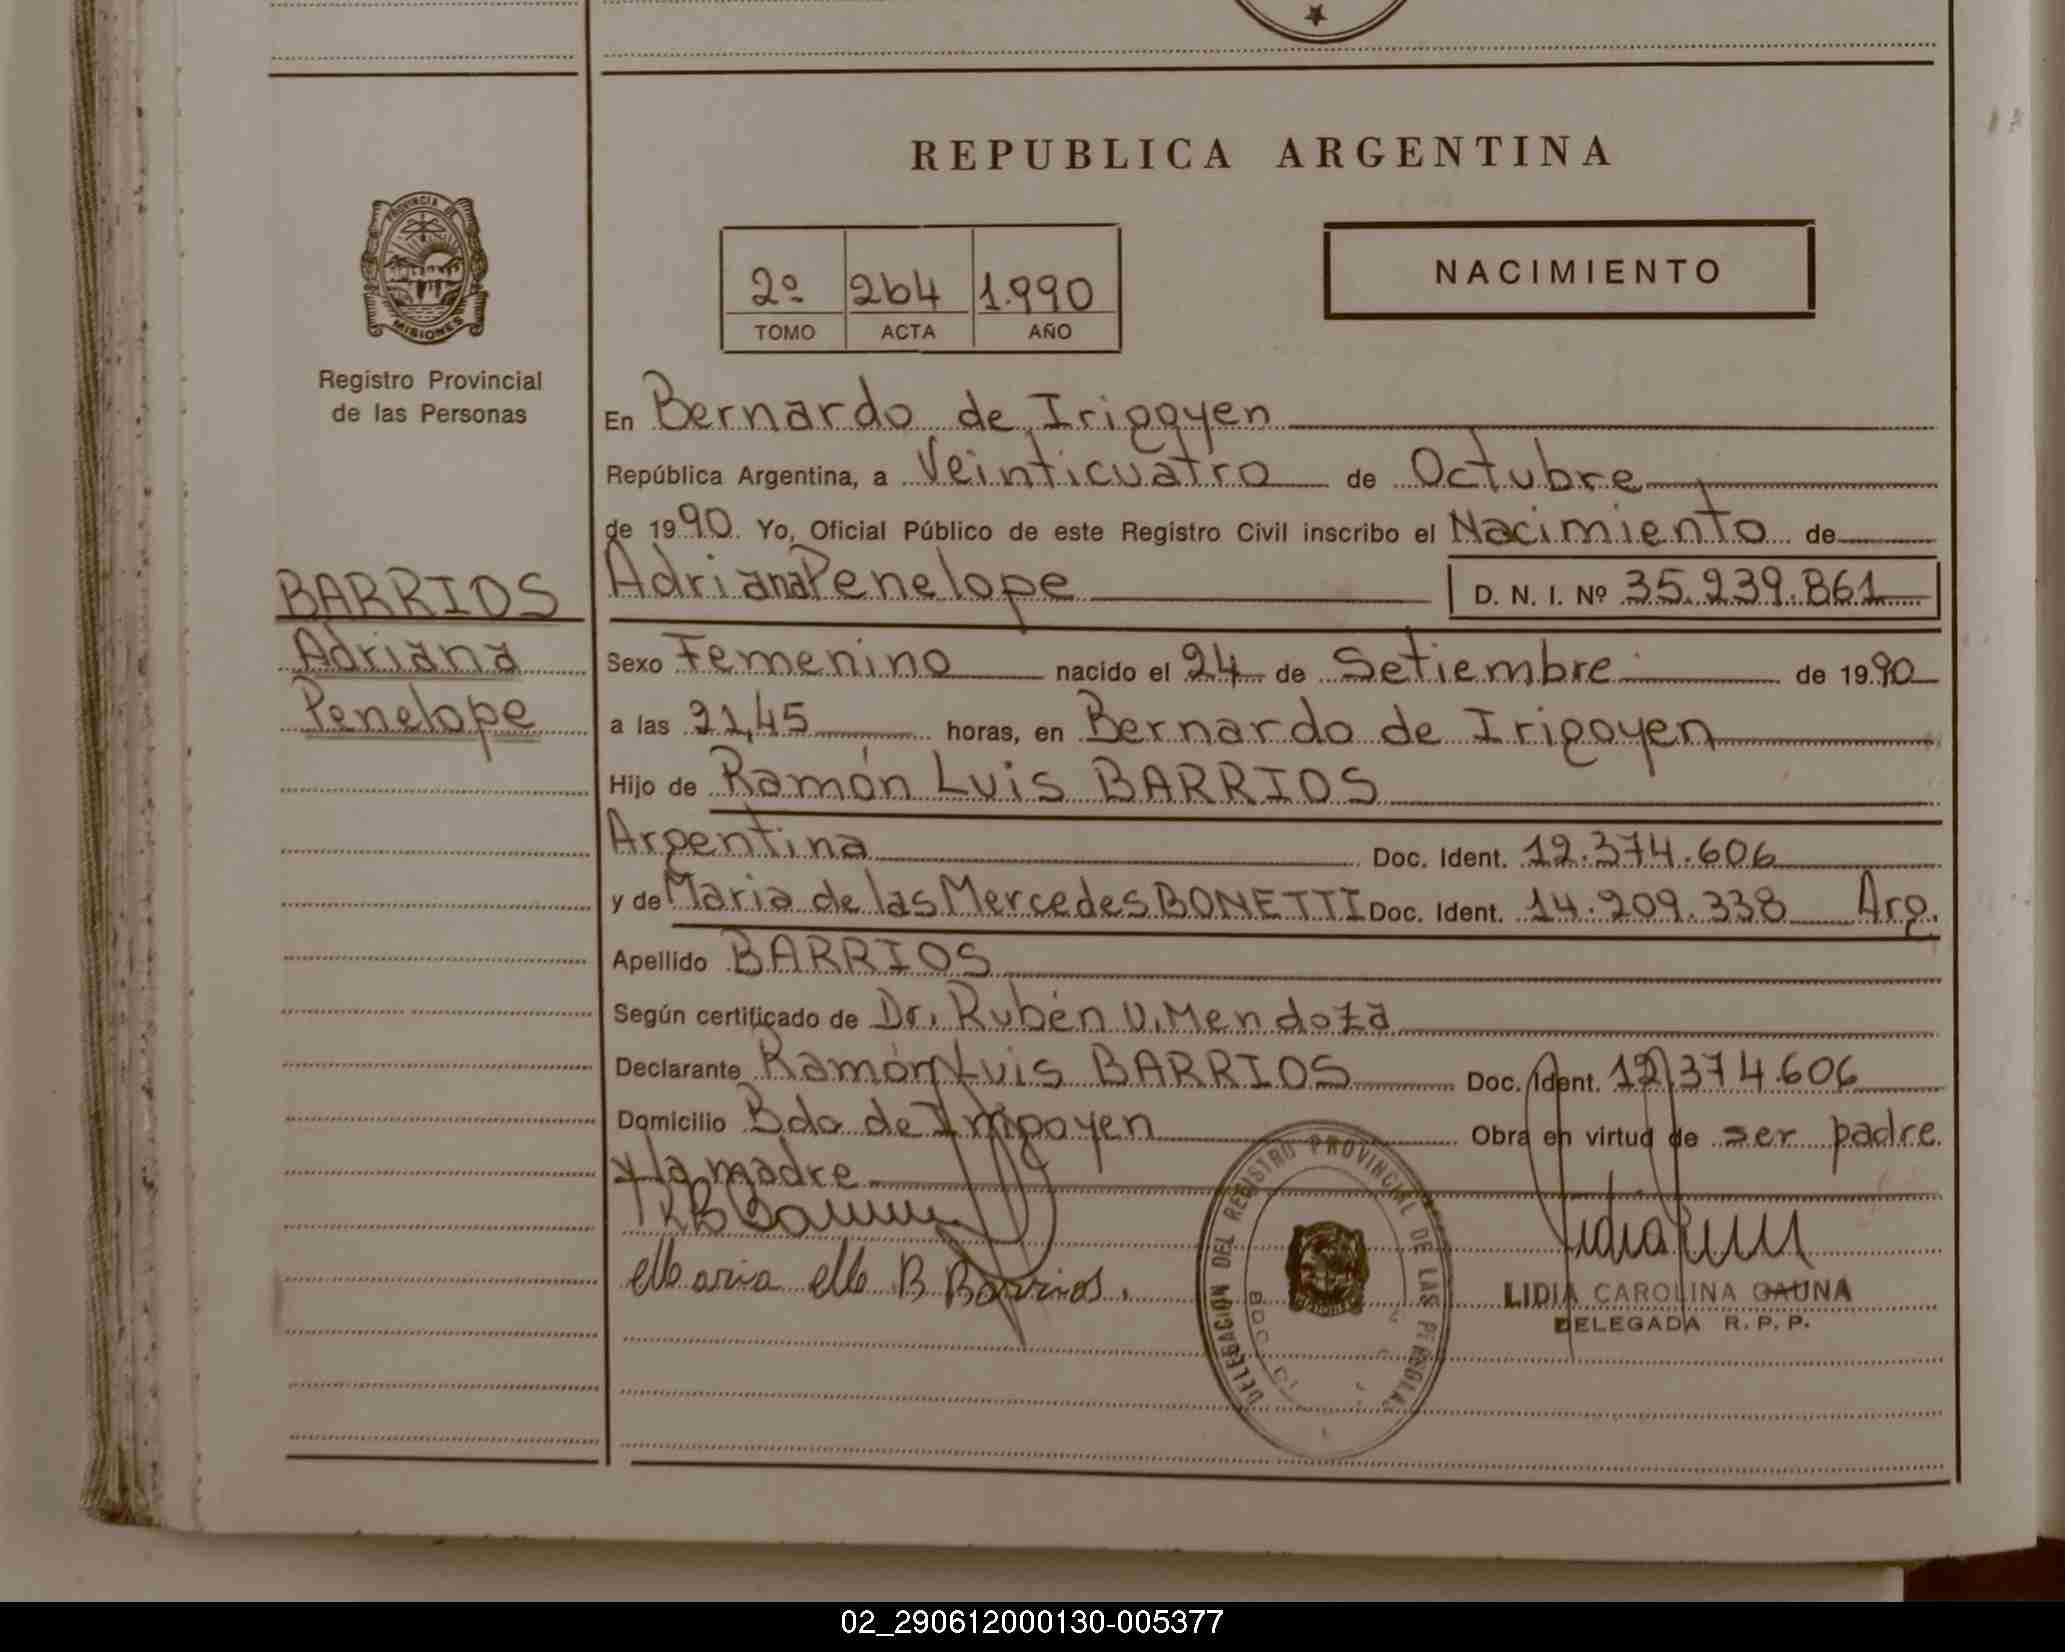 REPUBLICA ARGENTINA
PROVINCIA DE
MISIONES
Registro Provincial
de las Personas
2º 264 1.990
TOMO ACTA AÑO
NACIMIENTO
En Bernardo de Irigoyen
República Argentina, a Veinticuatro de Octubre
de 1990. Yo, Oficial Público de este Registro Civil inscribo el Nacimiento de
BARRIOS
Adriana
Penelope
Adriana Penelope D. N. I. Nº 35.239.861
Sexo Femenino nacido el 24 de Setiembre de 1990
a las 21,45 horas, en Bernardo de Irigoyen
Hijo de Ramón Luis BARRIOS
Argentina Doc. Ident. 12.374.606
y de Maria de las Mercedes BONETTI Doc. Ident. 14.209.338 Arg.
Apellido BARRIOS
Según certificado de Dr. Rubén V. Mendoza
Declarante Ramón Luis BARRIOS Doc. Ident. 12.374.606
Domicilio Bdo de Irigoyen Obra en virtud de ser padre
y la madre
Maria M B Barrios.
DELEGACION DEL REGISTRO PROVINCIAL DE LAS PERSONAS
LIDIA CAROLINA GAUNA
DELEGADA R.P.P.
02_290612000130-005377